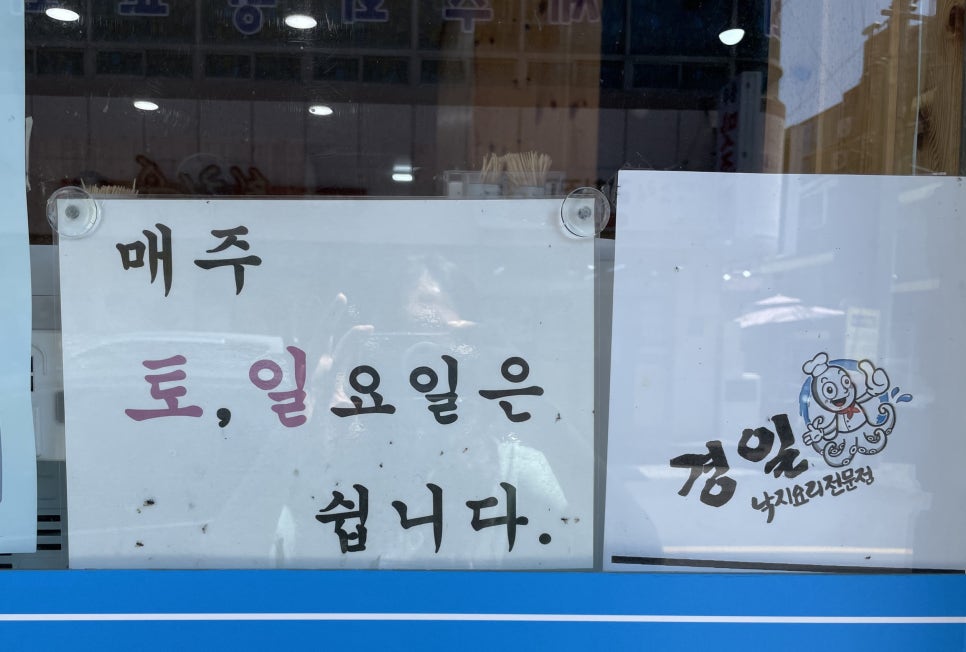 매주
토,일요일은
쉽니다.
경일
낙지요리전문점